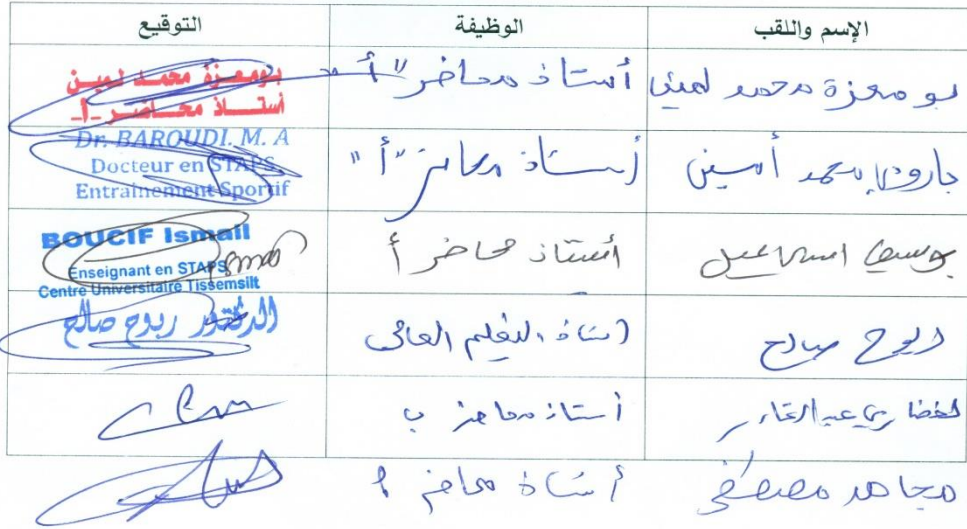 الإسم واللقب الوظيفة التوقيع
بومعزة محمد لمين أستاذ محاضر "أ" بـومـعـزة محمـد لمـيـن
أستـــاذ محـــاضـــر -أ-
بارودي محمد أمين أستاذ محاضر "أ" Dr. BAROUDI. M. A
Docteur en STAPS
Entrainement Sportif
بوسيف اسماعيل أستاذ محاضر أ BOUCIF Ismail
Enseignant en STAPS
Centre Universitaire Tissemsilt
ربوح صالح أستاذ التعليم العالي الدكتور ربوح صالح
لخضاري عبد القادر أستاذ محاضر ب
مجاهد مصطفى أستاذ محاضر أ